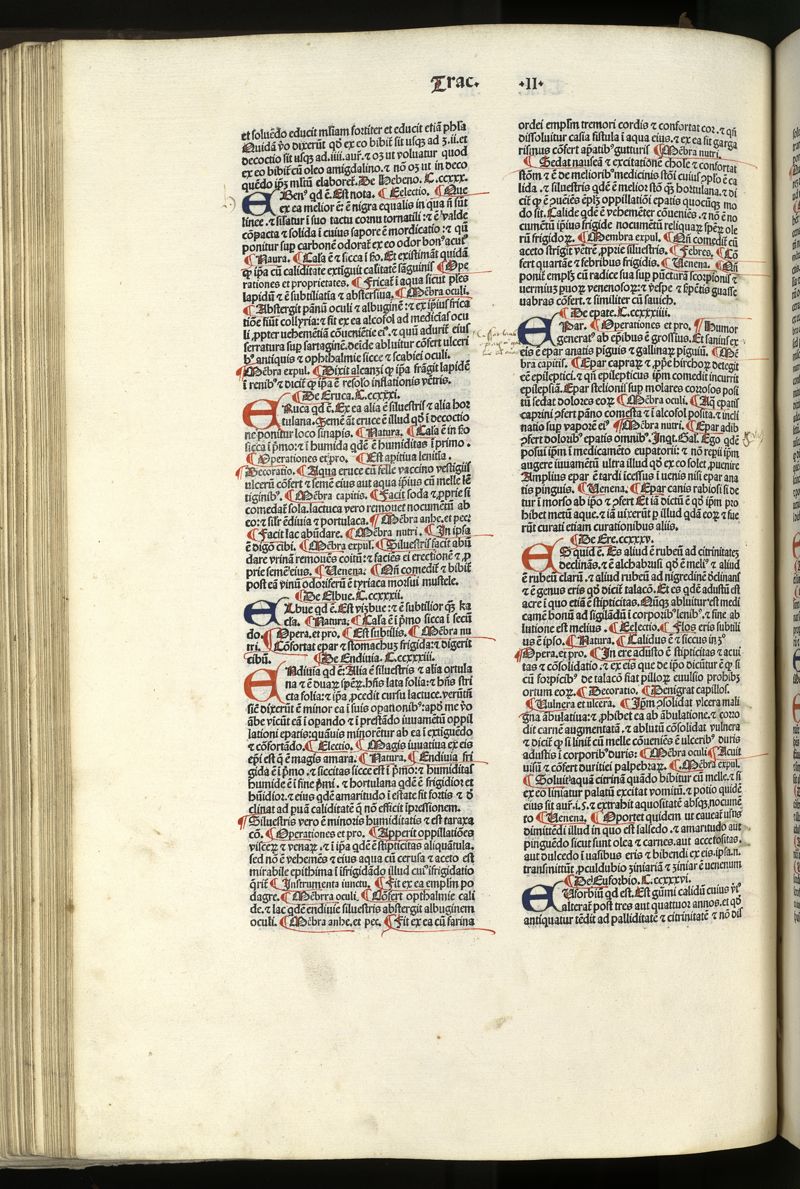 Trac. II
et soluēdo educit mfiam fortiter et educit etiā phſa
Quidā ꝟo dixerūt qđ ex eo bibit̃ ſit uſqꝫ ad ʒ.ii.et
decoctio ſit uſqꝫ ad.iiii.aur̃.⁊ oʒ ut uoluatur quod
ex eo bibit̃ cū oleo amigdalino.⁊ nō oʒ ut in deco
quēdo ip̄ʒ mltū elaboret̃. De Hebeno. C.ccxxx.
EBenꝰ qd ē. Eſt nota. ¶ Electio. ¶ Que
ex ea melior ē: ē nigra equalis in qua ñ ſūt
lince.⁊ ē ſilatur ī ſuo tactu cornu tornatili:⁊ ē ꝟalde
cōpacta ⁊ ſolida ī cuius ſapore ē mordicatio:⁊ qñ
ponitur ſup carbonē odorat̃ ex eo odor bonꝰ ⁊ acutꝰ
¶ Natura. ¶ Cal̃a ē ⁊ ſicca ī ẜo. Et exiſtimāt quidā
ꝙ ip̄a cū caliditate extiguit caliditatē ſāguinis ¶ Ope
rationes et proprietates. ¶ Fricat̃ ī aqua ſicut pl̃es
lapidū ⁊ ē ſubtiliatia ⁊ abſterſiua. ¶ Mēbra oculi.
¶ Abſtergit pānū oculi ⁊ albuginē:⁊ ex ip̄iuſ frica
tiōe fiūt collyria:⁊ fit ex ea alcofol ad medicīas ocu
li ꝓpter uehemētiā cōueniētie eiꝰ.⁊ quū adurit̃ eiuſ
ſerratura ſup ſartaginē.deīde abluitur cōfert ulceri
bꝰ antiquis ⁊ ophthalmie ſicce ⁊ ſcabiei oculi.
¶ Mēbra expul. ¶ Dixit alcanzi ꝙ ip̄a frāgit lapidē
ī renibꝰ ⁊ dicit̃ ꝙ ip̄a ē reſolo inflationis vētris.
¶ De Eruca. C.ccxxxi.
ERuca qd ē. Ex ea alia ē ſilueſtris ⁊ alia hor
tulana. Semē āt eruce ē illud qđ ī decoctio
ne ponitur loco ſinapis. ¶ Natura. ¶ Cal̃a ē in ẜo
ſicca ī p̄mo:⁊ ī humida qdē ē humiditas ī primo.
¶ Operationes et pro. ¶ Eſt apitiua lenitia.
¶ Decoratio. ¶ Aqua eruce cū felle vaccino veſtigiiſ
ulcerū cōfert ⁊ ſemē eius aut aqua ip̄ius cū melle lē
tiginibꝰ. ¶ Mēbra capitis. ¶ Facit ſoda ⁊ ꝓprie ſi
comedat̃ ſola.lactuca vero remouet nocumētū ab
eo:⁊ ſil̃r ēdiuia ⁊ portulaca. ¶ Mēbra anhe.et pec̃
¶ Facit lac abūdare. ¶ Mēbra nutri. ¶ In ipſa
ē digō cibi. ¶ Mēbra expul. ¶ Silueſtris facit abū
dare vrinā remouēs coitū:⁊ faciēs ei erectionē ⁊ ꝓ
prie ſemē eius. ¶ Venena. ¶ Qñ comedit̃ ⁊ bibit̃
poſt ea vinū odoriferū ē tyriaca morſui muſtele.
¶ De Elbue. C.ccxxxii.
ELbue qd ē. Eſt viʒbue:⁊ ē ſubtilior qʒ ka
cla. ¶ Natura. ¶ Cal̃a ē ī p̄mo ſicca ī ſecū
do. ¶ Opera.et pro. ¶ Eſt ſubtilis. ¶ Mēbra nu
tri. ¶ Cōfortat epar ⁊ ſtomachuʒ frigida:⁊ digerit
cibū. ¶ De Endiuia. C.ccxxxiii.
ENdiuia qd ē. Alia ē ſilueſtris ⁊ alia ortula
na ⁊ ē duaꝝ ſpēꝝ.hñs lata folia:⁊ hñs ſtri
cta folia:⁊ ip̄a ꝓcedit curſu lactuce.verūtn̄
ſic̄ dixerūt ē minor ea ī ſuis opationibꝰ:apđ me ꝟo
ābe vīcūt eā ī opando ⁊ ī preſtādo iuuamētū oppil
lationi epatis:quāuis minorētur ab ea ī exiguēdo
⁊ cōfortādo. ¶ Electio. ¶ Magis iuuatiua ex eis
epī eſt q̄ ē magis amara. ¶ Natura. ¶ Endiuia fri
gida ē ī p̄mo.⁊ ſiccitas ſicce eſt ī p̄mo:⁊ humiditaſ
humide ē ī fine p̄mi.⁊ hortulana qdē ē frigidior et
hūidior.⁊ eius qdē amaritudo ī eſtate fit fortis ⁊ đ
clinat ad puā caliditatē q̄ nō efficit īpreſſionem.
¶ Silueſtris vero ē minoris humiditatis ⁊ eſt taraxa
cō. ¶ Operationes et pro. ¶ Apperit oppillatiōes
viſceꝝ ⁊ venaꝝ.⁊ ī ip̄a qdē ē ſtipticitas aliquātula.
ſed nō ē vehemēs ⁊ eius aqua cū ceruſa ⁊ aceto eſt
mirabile epithima ī īfrigidādo illud cuiꝰ īfrigidatio
q̄rit̃ ¶ Inſtrumenta iunctu. ¶ Fit ex ea emplm̄ po
dagre. ¶ Mēbra oculi. ¶ Cōfert opthalmie cali
de.⁊ lac qdē endiuie ſilueſtris abſtergit albuginem
oculi. ¶ Mēbra anhe.et pec. ¶ Fit ex ea cū farina
ordei emplm̄ tremori cordis ⁊ confortat cor.⁊ qñ
diſſoluitur caſia fiſtula ī aqua eius.⁊ ex ea fit garga
riſmus cōfert apātibꝰ gutturis ¶ Mēbra nutri.
¶ Sedat nauſeā ⁊ excitationē chole ⁊ confortat
ſtom̄ ⁊ ē de melioribꝰ medicinis ſtōi cuiuſ ꝯplꝰo ē ca
lida.⁊ ſilueſtris qdē ē melior ſtō qʒ hortulana.⁊ di
cit̃ ꝙ ē ꝯueniēs epl̄ʒ oppillatiōi epatis quocūqʒ mo
do ſit. Calide qdē ē vehemēter cōueniēs.⁊ nō ē no
cumētū ip̄ius frigide nocumētū reliquaꝝ ſpēꝝ ole
rū frigidoꝝ. ¶ Membra expul. ¶ Qñ comedit̃ cū
aceto ſtrigit vētrē ꝓprie ſilueſtris. ¶ Febres. ¶ Cō
fert quartāe ⁊ febribus frigidis. ¶ Venena. ¶ Qñ
ponit̃ emplʒ cū radice ſua ſup pūcturā ſcorpionis ⁊
uermiuʒ ⁊ uoꝝ venenoſoꝝ:⁊ ꝟeſpe ⁊ ſp̄ētis guaſſe
uabras cōfert.⁊ ſimiliter cū ſauich.
¶ De epate. C.ccxxxiiii.
EPar. ¶ Operationes et pro. ¶ Humor
generatꝰ ab epibus ē groſſus. Et ſaniuſ ex
eis ē epar anatis piguis ⁊ gallinaꝝ piguiū. ¶ Mē
bra capitis. ¶ Epar capraꝝ ⁊ ꝓp̄e hircoꝝ detegit
eē epileptici.⁊ qñ epilepticus ip̄m comedit incurrit
epilepſiā. Epar ſtelionis ſup molares corroſos poſi
tū ſedat dolores eoꝝ ¶ Mēbra oculi. ¶ Aq̄ epatiſ
caprini ꝯfert pāno comeſta ⁊ ī alcofol poſita.⁊ incli
natio ſup vaporē eiꝰ ¶ Mēbra nutri. ¶ Epar adib
ꝯfert doloribꝰ epatis omnibꝰ. Inqt. Gal. Ego qdē
poſui ip̄m ī medicamēto eupatorii:⁊ nō repii ip̄m
augere iuuamētū ultra illud qđ ex eo ſolet ꝓuenire
Amplius epar ē tardi īceſſus ī uenis niſi epar ana
tis pinguis. ¶ Venena. ¶ Epar canis rabioſi ſi de
tur ī morſo ab ip̄o ⁊ ꝯfert Et iā dictū ē qđ ip̄m pro
hibet metū aque.⁊ iā uixerūt ꝑ illud qdā eoꝝ ⁊ fue
rūt curati etiam curationibus aliis.
¶ De Ere. C.ccxxxv.
ES quid ē. Es aliud ē rubeū ad citrinitateʒ
declinās.⁊ ē alchabruſi qđ ē meliꝰ ⁊ aliud
ē rubeū clarū.⁊ aliud rubeū ad nigredinē đclinanſ
⁊ ē genus eris qđ dicit̃ talacō. Et es qdē aduſtū eſt
acre ī quo etiā ē ſtipticitas. Nūqʒ abluitur eſt medi
camē bonū ad ſigilādū ī corporibꝰ lenibꝰ.⁊ ſine ab
lutione eſt melius. ¶ Electio. ¶ Flos eris ſubtili
us ē ipſo. ¶ Natura. ¶ Calidus ē ⁊ ſiccus in ʒꝰ
¶ Opera.et pro. ¶ In ere aduſto ē ſtipticitas ⁊ acui
tas ⁊ cōſolidatio.⁊ ex eis que de ip̄o dicūtur ē ꝙ ſi
cū forpicibꝰ de talacō fiat pilloꝝ euulſio prohibʒ
ortum eoꝝ. ¶ Decoratio. ¶ Denigrat capillos.
¶ Vulnera et ulcera. ¶ Ip̄m ꝯſolidat ulcera mali
gna ābulatiua:⁊ ꝓhibet ea ab ābulatione.⁊ corro
dit carnē augmentatā.⁊ ablutū cōſolidat vulnera
⁊ dicit̃ ꝙ ſi linit̃ cū melle cōueniēs ē ulceribꝰ duris
aduſtis ī corporibꝰ duris: ¶ Mēbra oculi ¶ Acuit
uiſū ⁊ cōfert duritiei palpebraꝝ. ¶ Mēbra expul.
¶ Soluit aquā citrinā quādo bibitur cū melle.⁊ ſi
ex eo liniatur palatū excitat vomitū.⁊ potio quidē
eius ſit aur̃.i.5.⁊ extrahit aquoſitatē abſqʒ nocumē
to ¶ Venena. ¶ Oportet quidem ut caueat̃ uſuſ
dimittēdi illud in quo eſt ſalſedo.⁊ amaritudo aut
pinguēdo ſicut ſunt olea ⁊ carnes.aut accetoſitas.
aut dulcedo ī uaſibus eris ⁊ bibendi ex eis.ip̄a.n.
tranſmittūt̃ ꝓculdubio ʒiniariā ⁊ ʒiniar ē uenenum
¶ De Euforbio. C.ccxxxvi.
EUforbiū qd eſt. Eſt gūmi calidū cuius ꝟtꝰ
alterat̃ poſt tres aut quattuor annos.et qđ
antiquatur tēdit ad palliditatē ⁊ citrinitatē ⁊ nō diſ